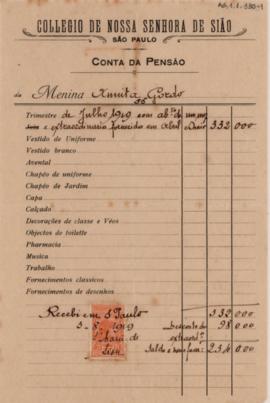 Ad.1.1.330-1
COLLEGIO DE NOSSA SENHORA DE SIÃO
SÃO PAULO
CONTA DA PENSÃO
da Menina Annita Gordo
Trimestre de Julho 1919 com ab.to de um mez
e extraordinario em Abril 332 000
Vestido de Uniforme
Vestido branco
Avental
Chapéo de uniforme
Chapéo de Jardim
Capa
Calçado
Decorações de classe e Véos
Objectos de toilette
Pharmacia
Musica
Trabalho
Fornecimentos classicos
Fornecimentos de desenhos
Recebi em S. Paulo 332 000
5-8-1919 Desconto do 98 000
extraord.
Saldo a 234 000
Sion